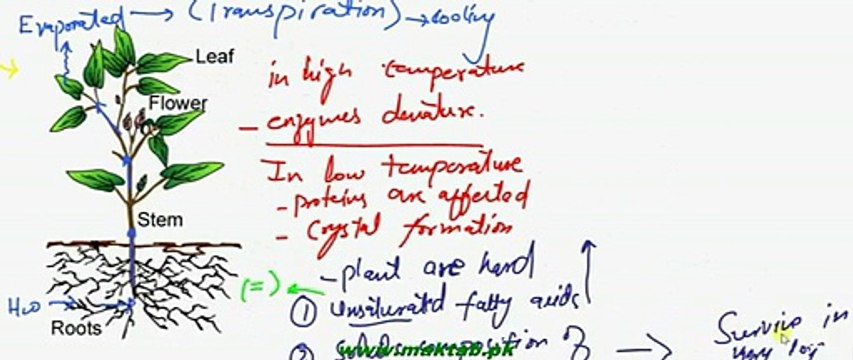 Evaporated → (Transpiration) → cooling
Leaf
in high temperature
Flower
- enzymes denature.
In low temperature
- proteins are affected
- Crystal formation
Stem
- plant are hard
(=) ←
① Unsaturated fatty acids
H₂O
Roots
② composition of →
www.maktab.pk
Survive in
very low